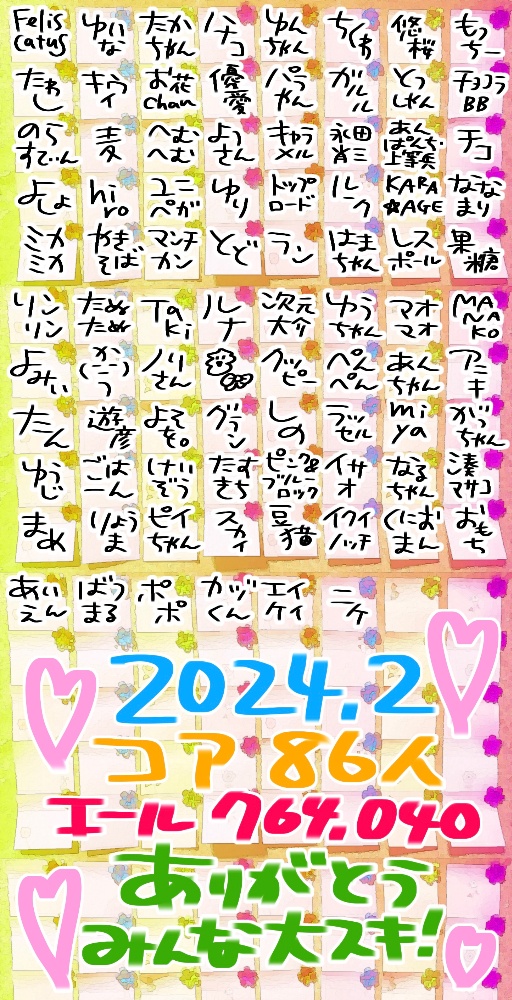 Felis catus ゆいな たかちゃん ハチコ ゆんちゃん ちくわ 悠桜 もっちー
たわし キウイ お花chan 優愛 パラやん ガルル とっしゃん チョコラBB
のらすてぃーん 麦 へむへむ ようさん キャラメル 永田肖ミ あんぱんち・上等兵 チコ
よしょ hiro ユニペガ ゆり トップロード ルーク KARA☆AGE ななまり
ミカミカ やきそば マンチカン とど ラン はまちゃん レスポール 果糖
リンリン たぬたぬ Taki ルナ 次元大介 ゆうちゃん マオマオ MANAKO
よみぃ か(ーニ)う ノリさん グッピー ぺんぺん あんちゃん アニキ
たん 遊彦 よそを。 グラン しの ラッセル miya がっちゃん
ゆうじ ごはんー けいぞう たむきち ピンク&ブルーロック イサオ なるちゃん 湊マサコ
まめ りょうま ピイちゃん スカイ 豆猫 イクイノッチ くにおまん おもち
あいえん ばうまる ポポ カヅくん エイケイ ニケ
2024.2
コア 86人
エール 764.040
ありがとう
みんな大スキ!